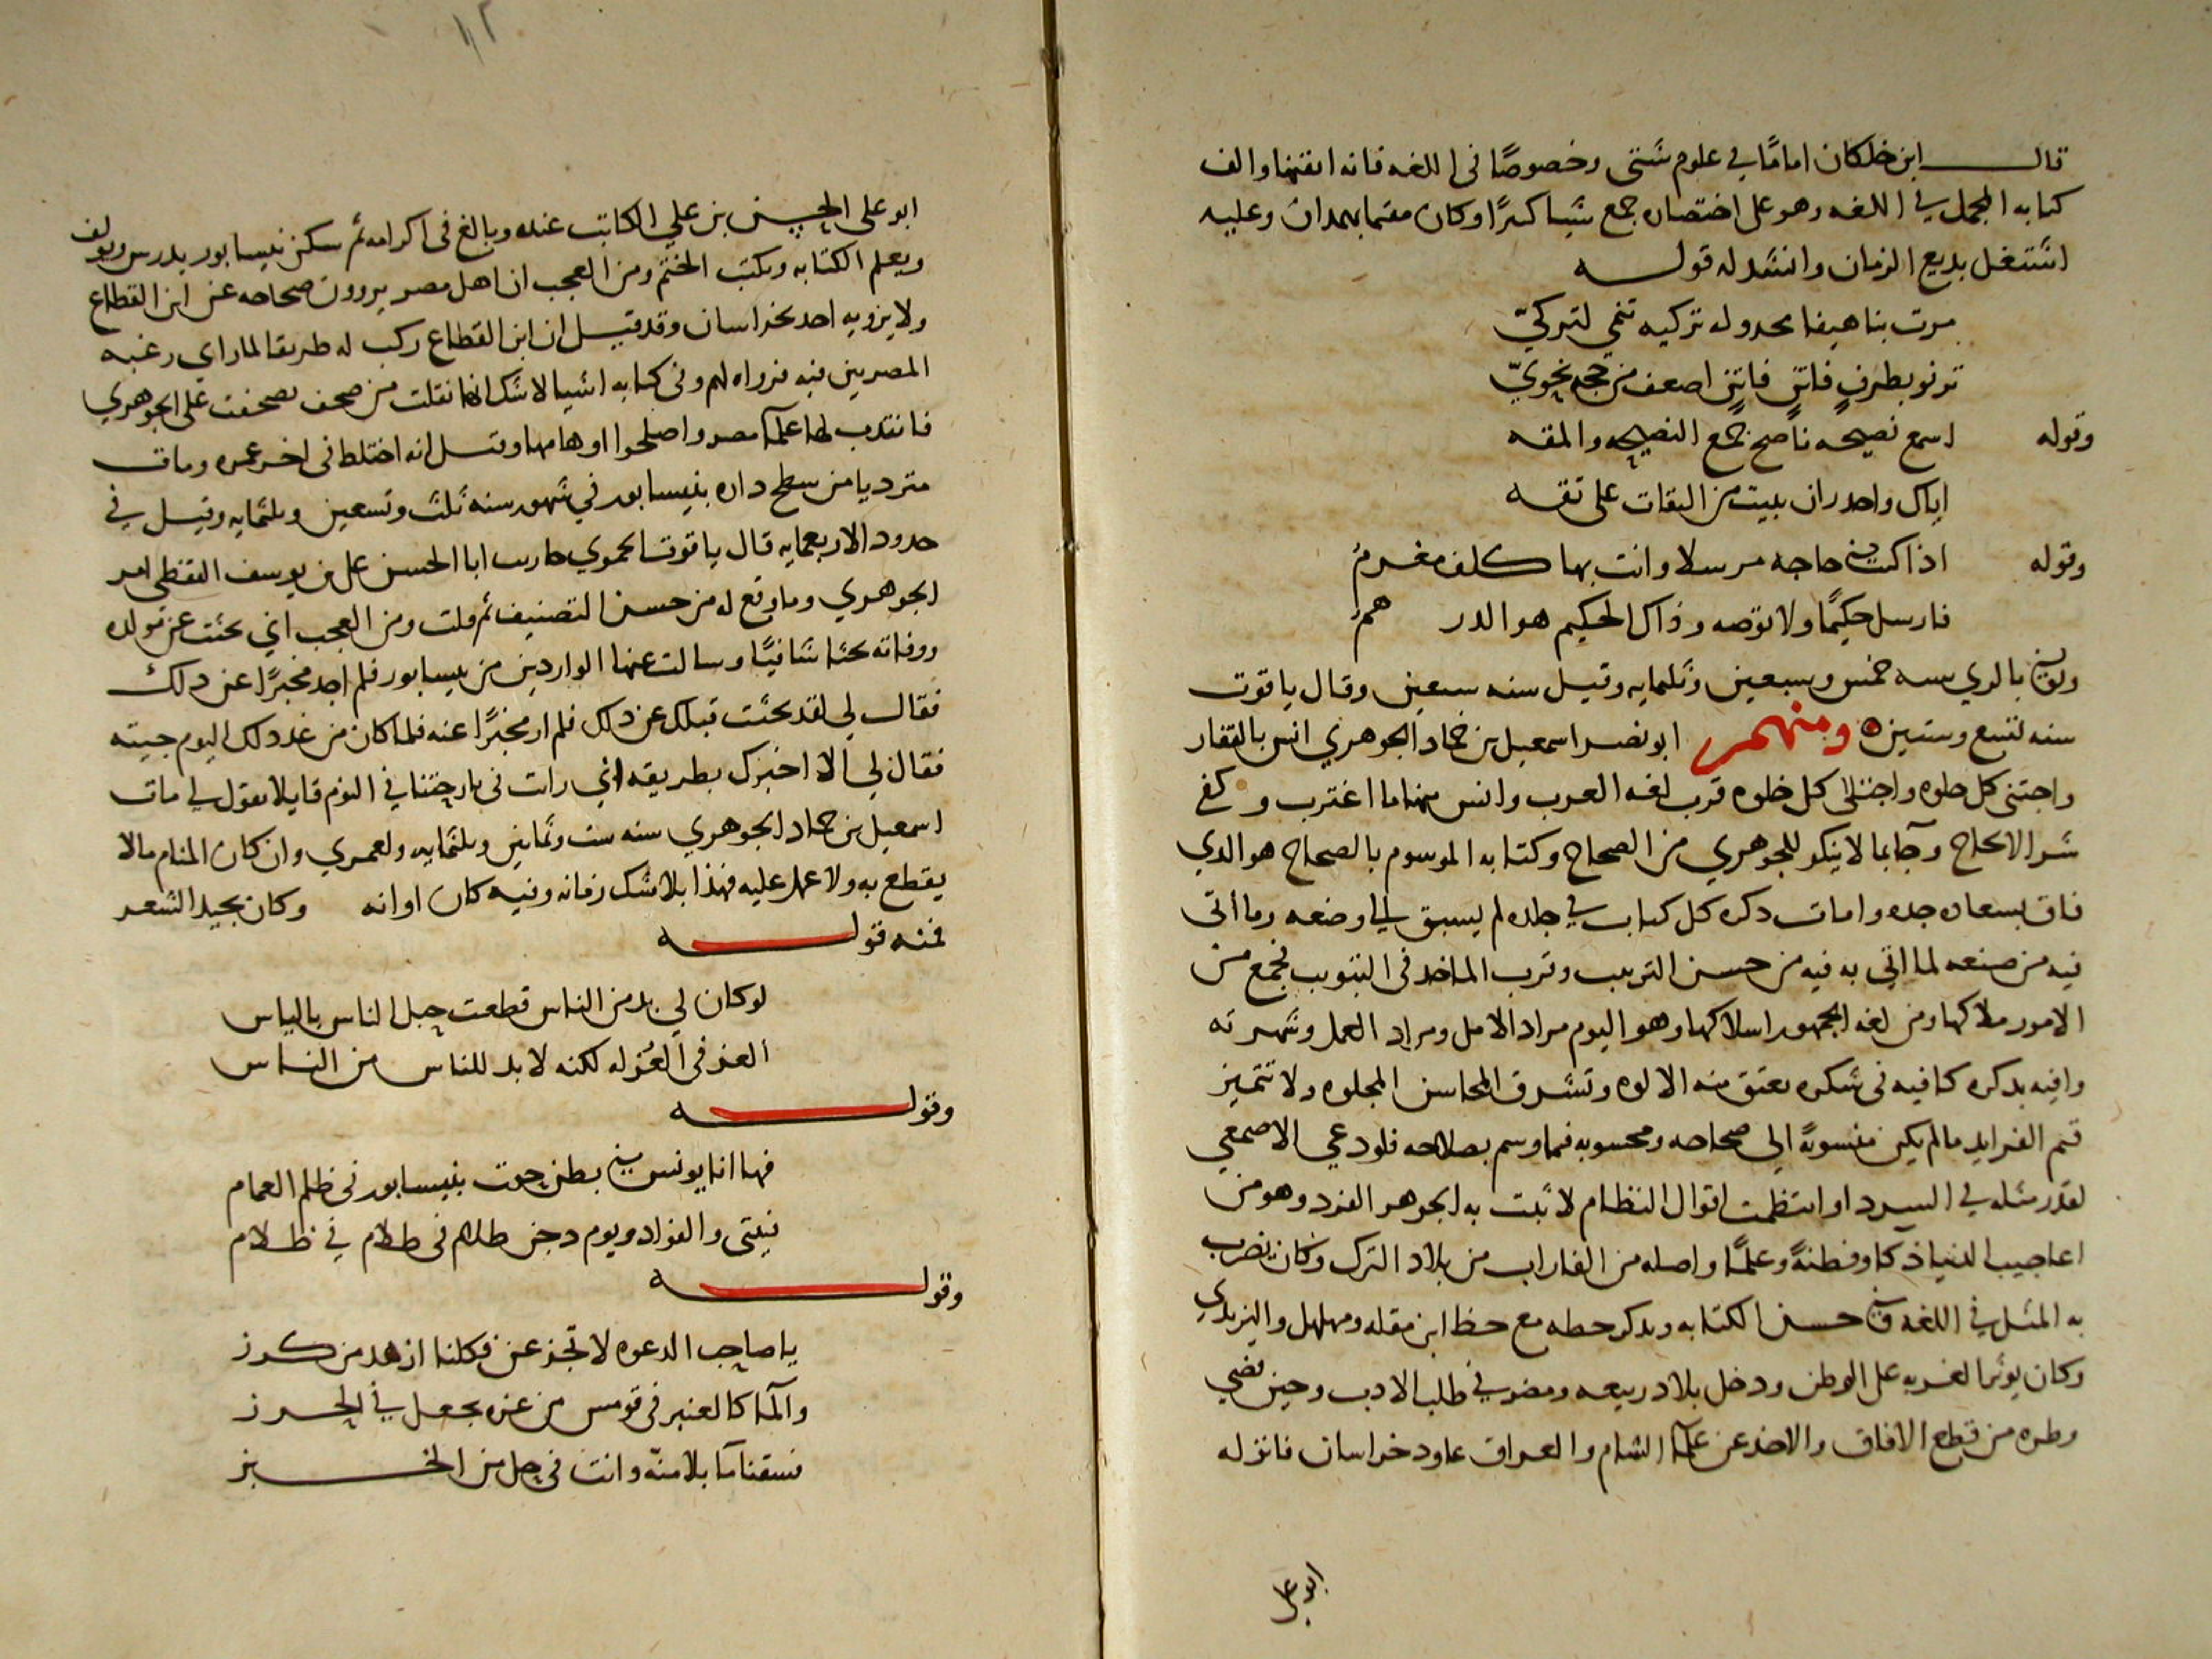 قال ابن خلكان امامًا في علوم شتى وخصوصًا فى اللغه فانه اتقنها والف
كتابه المجمل في اللغه وهو على اختصاره جمع شيا كثيرًا وكان مقيما بهمدان وعليه
اشتغل بديع الزمان وانشد له قوله
مرت بنا هيفا مجدوله تركيه تنمي لتركيّ
ترنو بطرفٍ فاترٍ فاتنٍ اضعف من حجه نحويّ
وقوله اسمع نصيحه ناصح جمع النصيحه والمقه
اياك واحدر ان تبيت من الثقات على ثقه
وقوله اذا كنت في حاجه مرسلا وانت بها كلف مغرمُ
فارسل حكيمًا ولا توصه وذاك الحكيم هو الدرهمُ
وتوفي بالري سنه خمس وسبعين وثلثمايه وقيل سنه تسعين وقال ياقوت
سنه تسع وستين ه ومنهم ابو نصر اسمعيل بن حماد الجوهري انس بالقفار
واجتنى كل حلوه واجتلى كل خلوه قرب لغه العرب وانس منها ما اغترب وكفى
شر الالحاح وجآ بما لا ينكر للجوهري من الصحاح وكتابه الموسوم بالصحاح هو الدي
فاق بسعاده جده وامات دكره كل كتاب في جلده لم يسبق الي وضعه وما أتى
فيه من صنعه لما اتي به فيه من حسن الترتيب وقرب الماخد فى التبويب فجمع من
الامور ملاكها ومن لغه الجمهور اسلاكها وهو اليوم مراد الامل ومراد العمل وشهرته
وافيه بدكره كافيه فى شكره تعتق منه الالوه وتشرق المحاسن المجلوه ولا تتميز
قيم الفرايد مالم يكن منسوبةً الى صحاحه ومحسوبه فيما وسم بصلاحه فلو دعي الاصمعي
لقدر مثله في السرد او انتظمت اقوال النظام لا ثبت به الجوهر الفرد وهو من
اعاجيب الدنيا ذكا وفطنةً وعلمًا واصله من الفاراب من بلاد الترك وكان يضرب
به المثل في اللغه وفي حسن الكتابه ويدكر خطه مع خط ابن مقله ومهلهل واليزيدي
وكان يوثر الغربه على الوطن ودخل بلاد ربيعه ومضر في طلب الادب وحين قضي
وطره من قطع الافاق والاخد عن علمآ الشام والعراق عاود خراسان فانزله
ابو على
١٢
ابو على الحسن بن علي الكاتب عنده وبالغ فى اكرامه ثم سكن نيسابور يدرس ويولف
ويعلم الكتابه ويكتب الختم ومن العجب ان اهل مصر يروون صحاحه عن ابن القطاع
ولا يرويه احد بخراسان وقد قيل ان ابن القطاع ركب له طريقا لما راي رغبه
المصريين فيه فرواه لهم وفى كتابه اشيا لا شك انها نقلت من صحف تصحفت على الجوهري
فانتدب لها علمآ مصر واصلحوا اوهامها وقيل انه اختلط فى اخر عمره ومات
مترديا من سطح داره بنيسابور في شهور سنه ثلث وتسعين وثلثمايه وقيل في
حدود الاربعمايه قال ياقوت الحموي ابا الحسن علي بن يوسف القفطي امر
الجوهري وما وقع له من حسن التصنيف ثم قلت ومن العجب اني بحثت عن مولده
ووفاته بحثا شافيًا وسالت عنها الواردين من نيسابور فلم اجد مخبرًا عن دلك
فقال لي لقد بحثت قبلك عن دلك فلم ار مخبرًا عنه فلما كان من غد دلك اليوم جيته
فقال لي الا اخبرك بطريقه اني رايت فى بارحتنا في النوم قايلا يقول لي مات
اسمعيل بن حماد الجوهري سنه ست وثمانين وثلثمايه ولعمري وان كان المنام مالا
يقطع به ولا عمل عليه فهذا بلا شك زمانه وفيه كان اوانه وكان يجيد الشعر
فمنه قوله
لو كان لي بد من الناس قطعت حبل الناس بالياس
العز فى العُزله لكنه لا بد للناس من الناس
وقوله
فها انا يونس في بطن حوت بنيسابور فى ظلم الغمام
فبيتى والفواد ويوم دجن ظلام فى ظلام في ظلام
وقوله
يا صاحب الدعوه لا تجزعن فكلنا ازهد من كرز
والمآ كالعنبر فى قومس من عزه يجعل في الحرز
فسقنا مآ بلا منّه وانت فى حل من الخبز